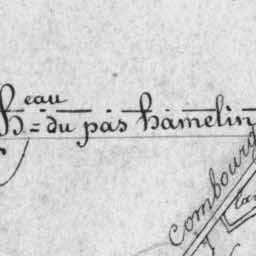 h.eau = du pas hamelin
Combourg